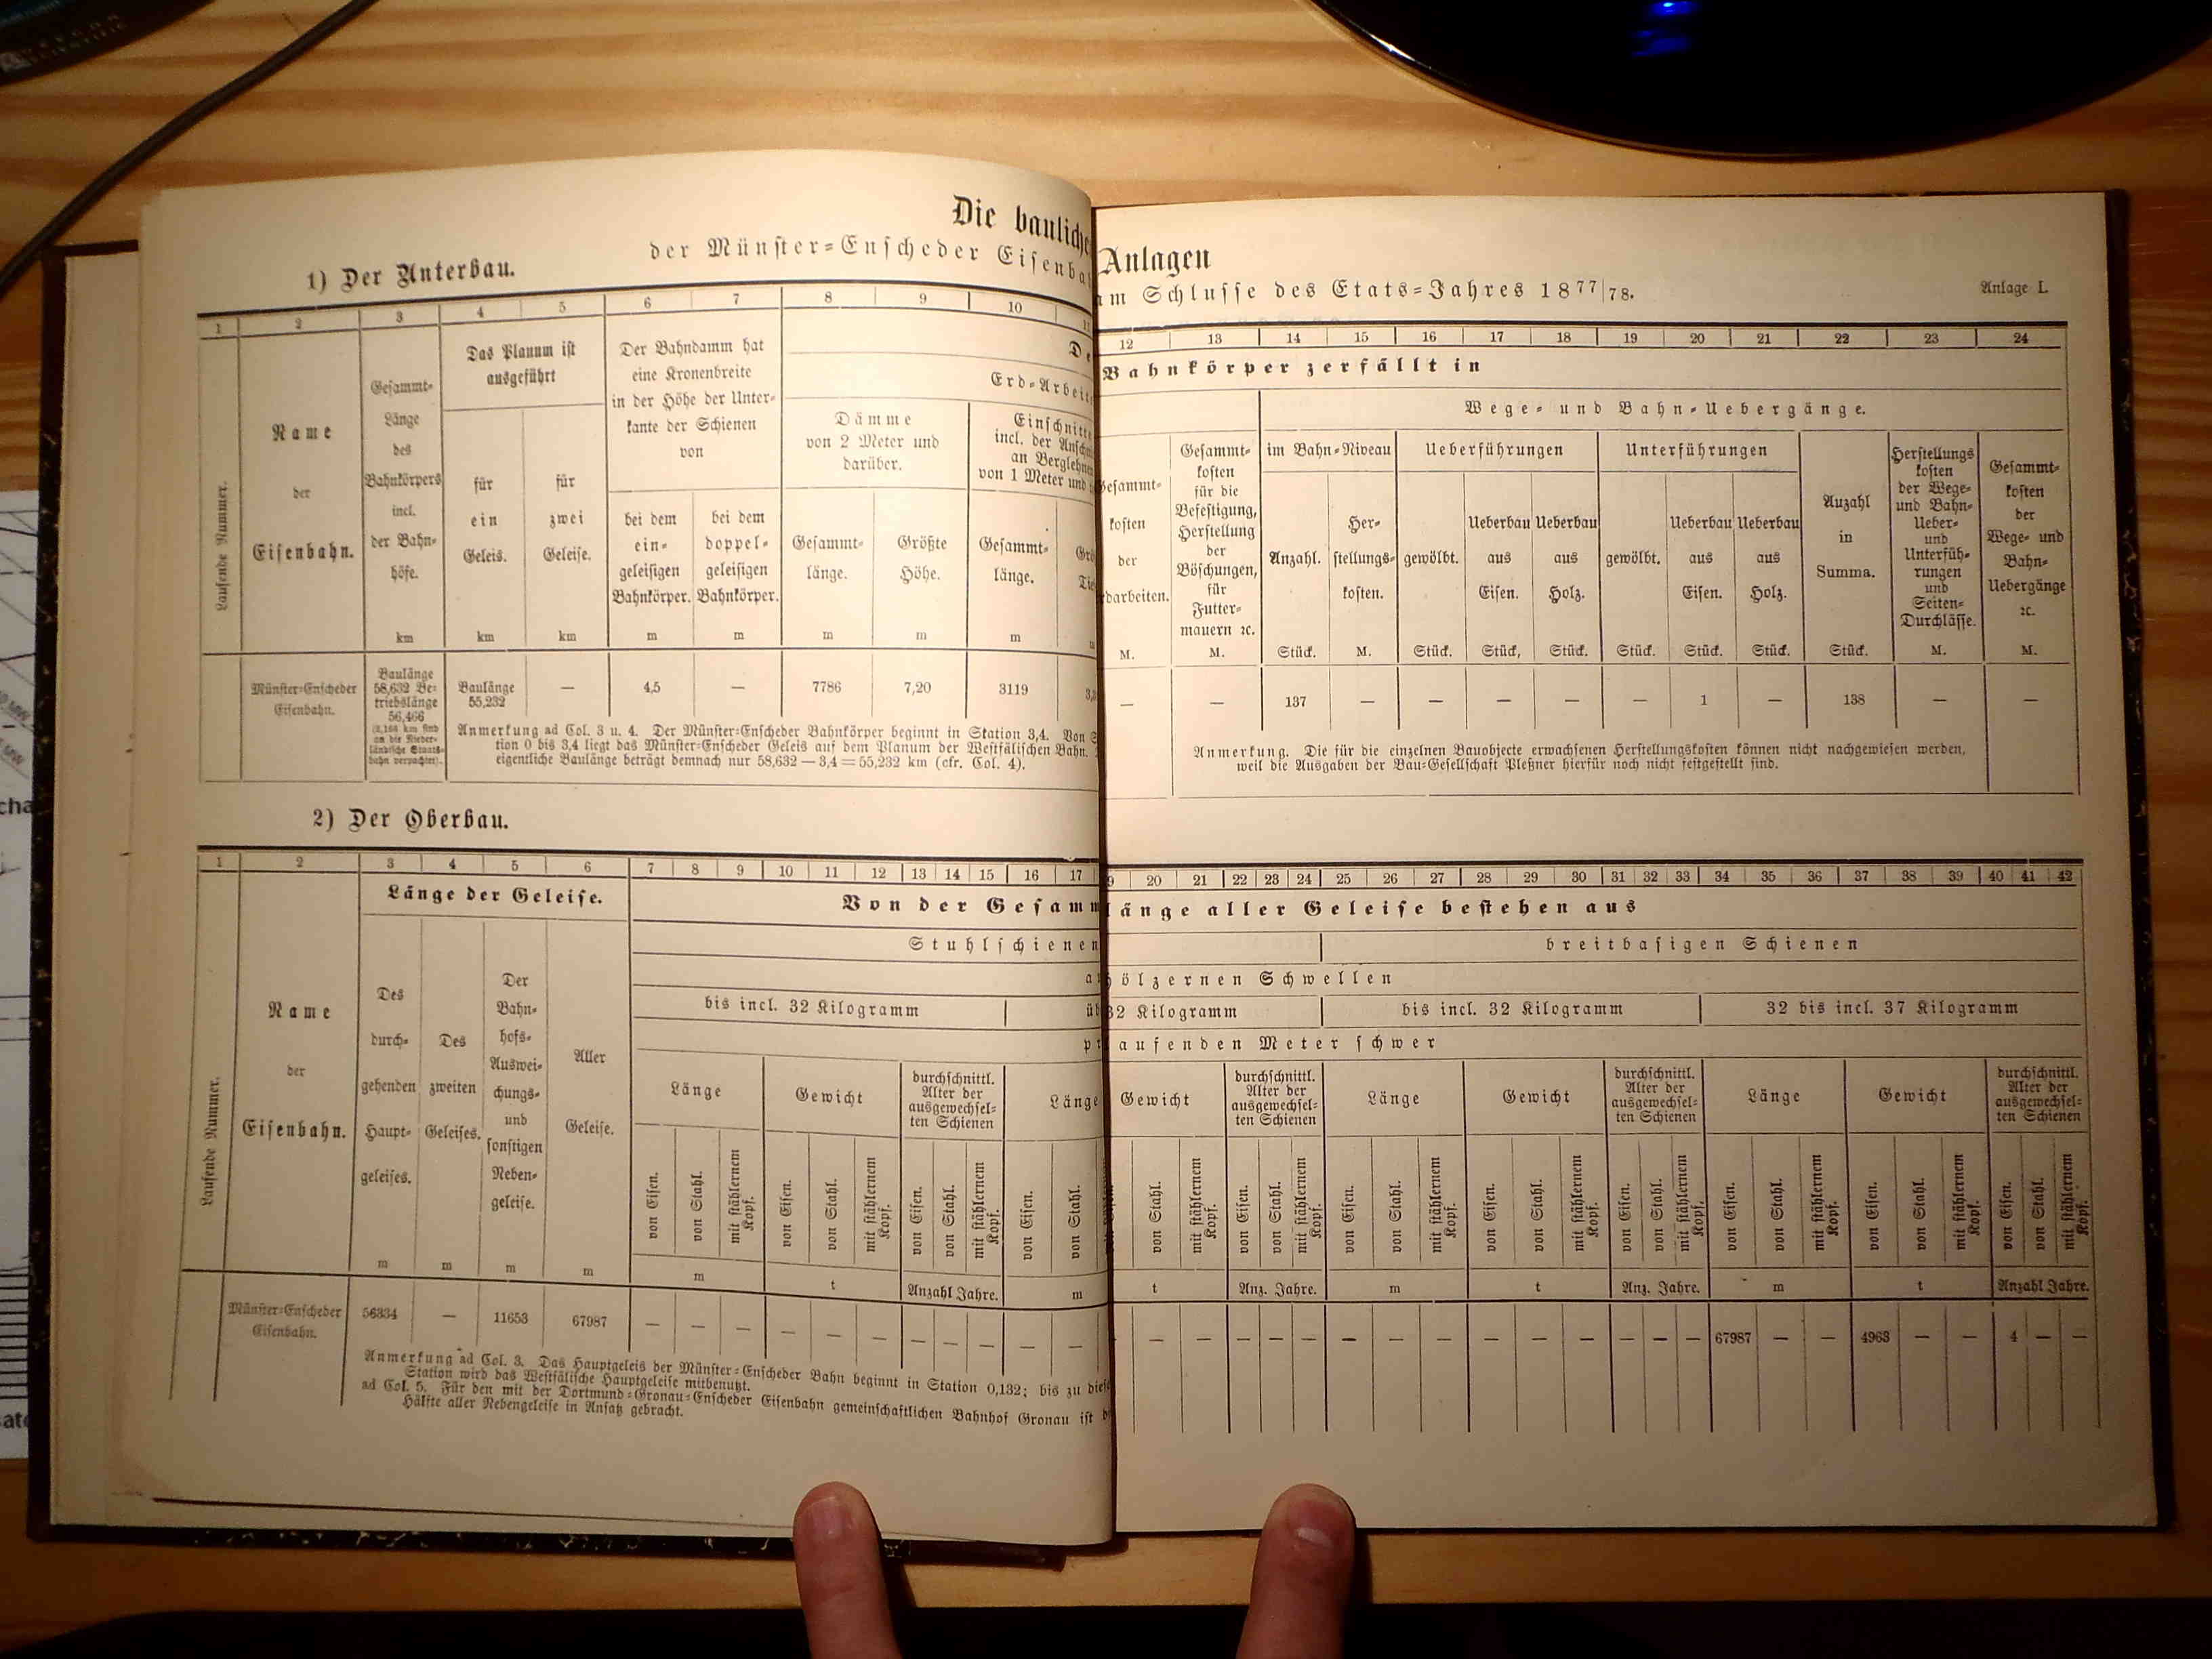 Die bauliche
Anlagen
der Münster-Enscheder Eisenba
am Schlusse des Etats-Jahres 1877/78.
Anlage I.
1) Der Unterbau.
1 2 3 4 5 6 7 8 9 10 11
12 13 14 15 16 17 18 19 20 21 22 23 24
Laufende Nummer.
Name
der
Eisenbahn.
Gesammt-
Länge
des
Bahnkörpers
incl.
der Bahn-
höfe.
km
Das Planum ist
ausgeführt
für
ein
Geleis.
km
für
zwei
Geleise.
km
Der Bahndamm hat
eine Kronenbreite
in der Höhe der Unter-
kante der Schienen
von
bei dem
ein-
geleisigen
Bahnkörper.
m
bei dem
doppel-
geleisigen
Bahnkörper.
m
De
Bahnkörper zerfällt in
Erd-Arbeit
Dämme
von 2 Meter und
darüber.
Gesammt-
länge.
m
Größte
Höhe.
m
Einschnitte
incl. der Ansch
an Berglehnen
von 1 Meter und
Gesammt-
länge.
m
Grö
Tie
m
Gesammt-
kosten
der
darbeiten.
M.
Gesammt-
kosten
für die
Befestigung,
Herstellung
der
Böschungen,
für
Futter-
mauern ꝛc.
M.
Wege- und Bahn-Uebergänge.
im Bahn-Niveau
Anzahl.
Stück.
Her-
stellungs-
kosten.
M.
Ueberführungen
gewölbt.
Stück.
Ueberbau
aus
Eisen.
Stück,
Ueberbau
aus
Holz.
Stück.
Unterführungen
gewölbt.
Stück.
Ueberbau
aus
Eisen.
Stück.
Ueberbau
aus
Holz.
Stück.
Anzahl
in
Summa.
Stück.
Herstellungs
kosten
der Wege-
und Bahn-
Ueber-
und
Unterfüh-
rungen
und
Seiten-
Durchlässe.
M.
Gesammt-
kosten
der
Wege- und
Bahn-
Uebergänge
ꝛc.
M.
Münster-Enscheder
Eisenbahn.
Baulänge
58,632 Be-
triebslänge
56,466
(2,166 km sind
an die Nieder-
ländische Staats-
bahn verpachtet).
Baulänge
55,232
— 4,5 — 7786 7,20 3119 3,
— — 137 — — — — — 1 — 138 — —
Anmerkung ad Col. 3 u. 4. Der Münster-Enscheder Bahnkörper beginnt in Station 3,4. Von S
tion 0 bis 3,4 liegt das Münster-Enscheder Geleis auf dem Planum der Westfälischen Bahn.
eigentliche Baulänge beträgt demnach nur 58,632 — 3,4 = 55,232 km (cfr. Col. 4).
Anmerkung. Die für die einzelnen Bauobjecte erwachsenen Herstellungskosten können nicht nachgewiesen werden,
weil die Ausgaben der Bau-Gesellschaft Pleßner hierfür noch nicht festgestellt sind.
2) Der Oberbau.
1 2 3 4 5 6 7 8 9 10 11 12 13 14 15 16 17
9 20 21 22 23 24 25 26 27 28 29 30 31 32 33 34 35 36 37 38 39 40 41 42
Laufende Nummer.
Name
der
Eisenbahn.
Länge der Geleise.
Des
durch-
gehenden
Haupt-
geleises.
m
Des
zweiten
Geleises.
m
Der
Bahn-
hofs-
Auswei-
chungs-
und
sonstigen
Neben-
geleise.
m
Aller
Geleise.
m
Von der Gesamm
länge aller Geleise bestehen aus
Stuhlschienen
breitbasigen Schienen
a
hölzernen Schwellen
bis incl. 32 Kilogramm
üb
32 Kilogramm
bis incl. 32 Kilogramm
32 bis incl. 37 Kilogramm
pr
laufenden Meter schwer
Länge
von Eisen.
von Stahl.
mit stählernem Kopf.
m
Gewicht
von Eisen.
von Stahl.
mit stählernem Kopf.
t
durchschnittl.
Alter der
ausgewechsel-
ten Schienen
von Eisen.
von Stahl.
mit stählernem Kopf.
Anzahl Jahre.
Länge
von Eisen.
von Stahl.
m
Gewicht
von Stahl.
mit stählernem Kopf.
t
durchschnittl.
Alter der
ausgewechsel-
ten Schienen
von Eisen.
von Stahl.
mit stählernem Kopf.
Anz. Jahre.
Länge
von Eisen.
von Stahl.
mit stählernem Kopf.
m
Gewicht
von Eisen.
von Stahl.
mit stählernem Kopf.
t
durchschnittl.
Alter der
ausgewechsel-
ten Schienen
von Eisen.
von Stahl.
mit stählernem Kopf.
Anz. Jahre.
Länge
von Eisen.
von Stahl.
mit stählernem Kopf.
m
Gewicht
von Eisen.
von Stahl.
mit stählernem Kopf.
t
durchschnittl.
Alter der
ausgewechsel-
ten Schienen
von Eisen.
von Stahl.
mit stählernem Kopf.
Anzahl Jahre.
Münster-Enscheder
Eisenbahn.
56334 — 11653 67987 — — — — — — — — — — —
— — — — — — — — — — — — — — 67987 — — 4963 — — 4 — —
Anmerkung ad Col. 3. Das Hauptgeleis der Münster-Enscheder Bahn beginnt in Station 0,132; bis zu diese
Station wird das Westfälische Hauptgeleise mitbenutzt.
ad Col. 5. Für den mit der Dortmund-Gronau-Enscheder Eisenbahn gemeinschaftlichen Bahnhof Gronau ist d
Hälfte aller Nebengeleise in Ansatz gebracht.